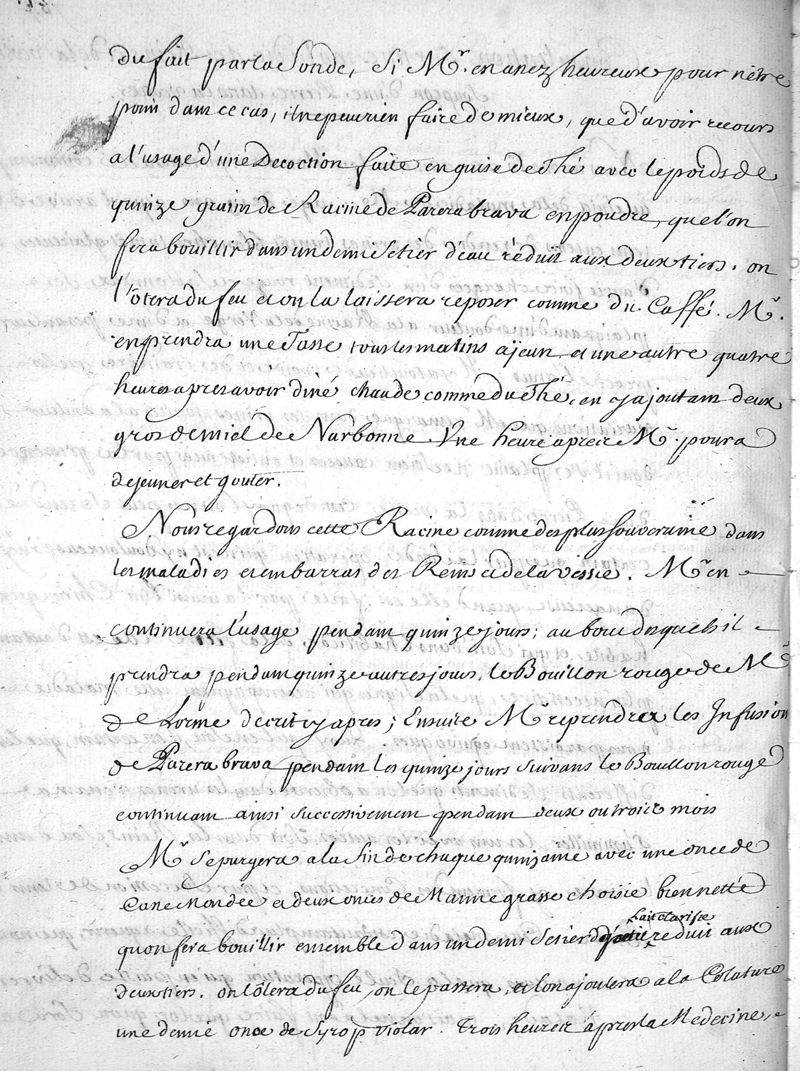 du fait par la Sonde, Si Mr. en a nez heureux pour nêtre
point dans ce cas, il ne peut rien faire de mieux, que d'avoir recours
a l'usage d'une Decoction faite en guise de Thé avec le poids de
quinze grains de Racine de Parera brava en poudre, que l'on
fera bouillir dans un demi Setier d'eau réduit aux deux tiers. on
l'ôtera du feu et on la laissera reposer comme du Caffé. Mr.
en prendra une Tasse tous les matins a jeun et une autre quatre
heures apres avoir diné chaude comme du Thé, en y ajoutant deux
gros de miel de Narbonne Une heure apres Mr. poura
dejeuner et gouter.
Nous regardons cette Racine comme des plus Souveraine dans
les maladies et embarras des Reins et de la vessie. Mr. en
continuera l'usage pendant quinze jours; au bout desquels il
prendra pendant quinze autres jours, le Bouillon rouge de Mr
de Lorme decrit cy apres; Ensuite Mr reprendra les Infusion
de Parera brava pendant les quinze jours suivans le Bouillon rouge
continuant ainsi successivement pendant deux ou trois mois
Mr Se purgera a la fin de chaque quinzaine avec une once de
Casse Mondée et deux onces de Manne grasse choisie bien nette
quon fera bouillir ensemble dans un demi Setier de petit Lait clarifié reduit aux
deux tiers. on l'ôtera du feu, on le passera, et lon ajoutera a la Colature
une demie once de Syrop violat. Trois heures apres la Medecine,